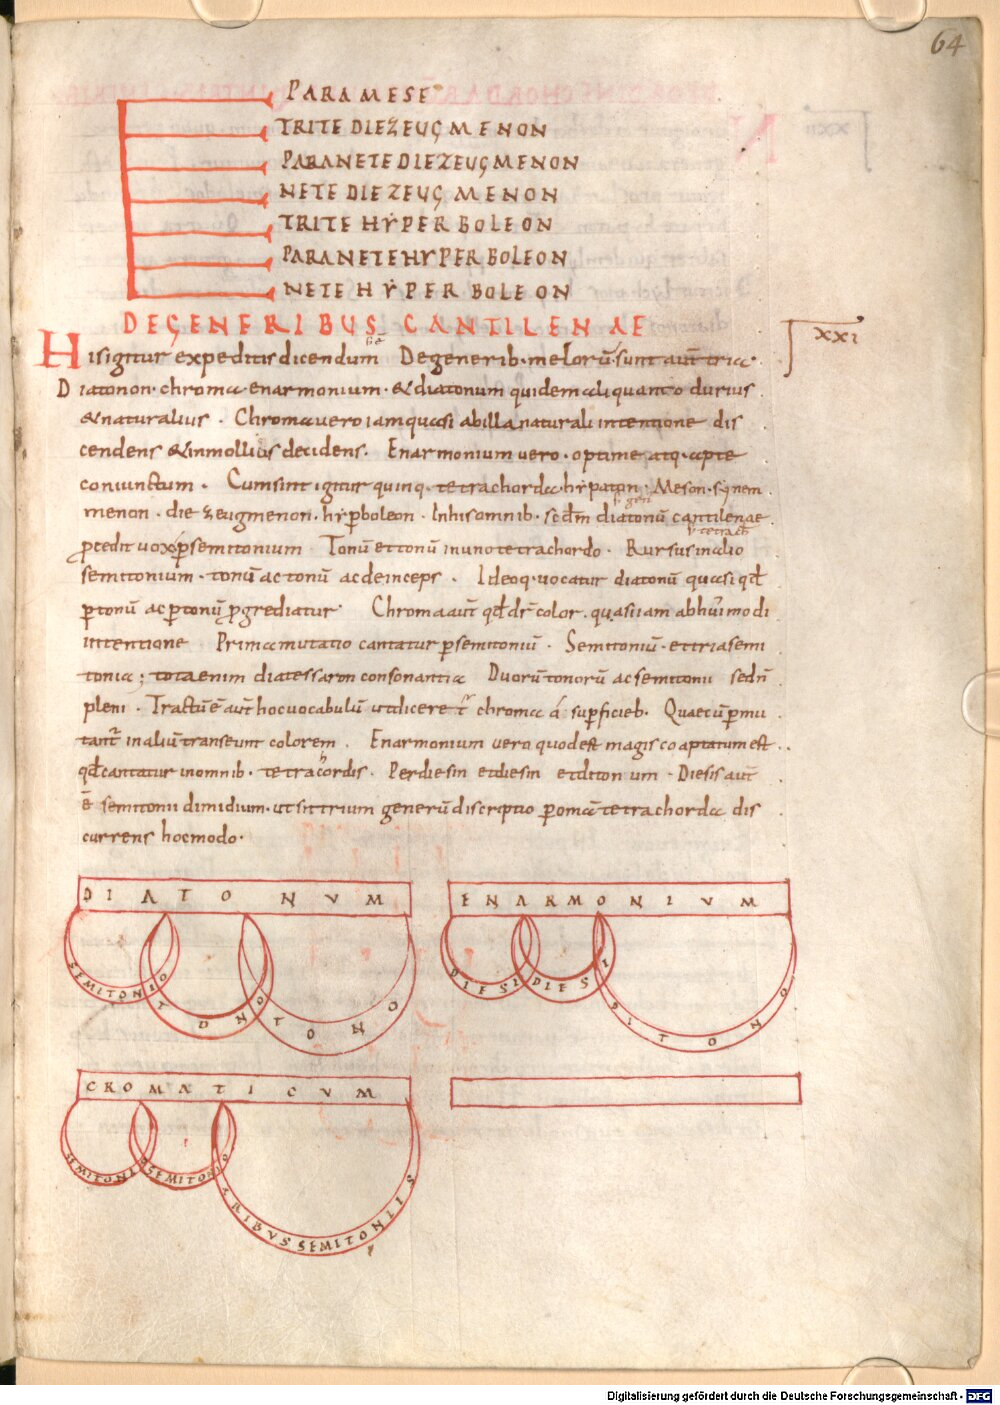 64
PARAMESE
TRITE DIEZEUGMENON
PARANETE DIEZEUGMENON
NETE DIEZEUGMENON
TRITE HYPERBOLEON
PARANETE HYPERBOLEON
NETE HYPERBOLEON
DE GENERIBUS CANTILENAE
XXI
His igitur expeditis dicendum De generib· melorū sunt aut tria·
Diatonon· chroma enarmonium· & diatonum quidem aliquanto durius
& naturalius · Chroma vero iam quasi ab illa naturali intentione dis
cendens & in mollius decidens. Enarmonium vero· optime atq· apte
coniunctum · Cum sint igitur quinq· tetrachorda hypaton · Meson· synem
menon · diezeugmenon· hyperboleon · In his omnib· scdm diatonū cantilenae
pcedit vox p semitonium · Tonū et tonū in uno tetrachordo · Rursus in alio
semitonium · tonū ac tonū ac deinceps · Ideoq· vocatur diatonū quasi qd
p tonū ac p tonū pgrediatur· Chroma aut qd dr color· quasi iam ab huiusmodi
intentione Prima mutatio cantatur p semitoniū · Semitoniū· et tria semi
tonia; tota enim diatessaron consonantia Duorū tonorū ac semitonii sed n̄
pleni · Tractū ē aut hoc vocabulū ut dicere chroma a supficieb· Quae cū pmu
tant in aliū transeunt colorem · Enarmonium vero quod est magis coaptatum est
qd cantatur in omnib· tetrachordis · Per diesin et diesin et ditonum · Diesis aut
ē semitonii dimidium· ut sit trium generū discriptio p om̄a tetrachorda dis
currens hoc modo·
DIATONVM
SEMITONIO
TONO
TONO
ENARMONIVM
DIESI
DIESI
DITONO
CROMATICVM
SEMITONIO
SEMITONIO
TRIBVS SEMITONIIS
Digitalisierung gefördert durch die Deutsche Forschungsgemeinschaft - DFG